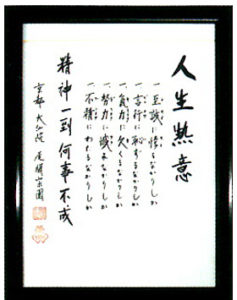 人生熱意
一、至誠に悖るなかりしか
一、言行に恥ずるなかりしか
一、気力に欠くるなかりしか
一、努力に憾みなかりしか
一、不精にわたるなかりしか
精神一到何事不成
京都 大仙院 尾関宗園